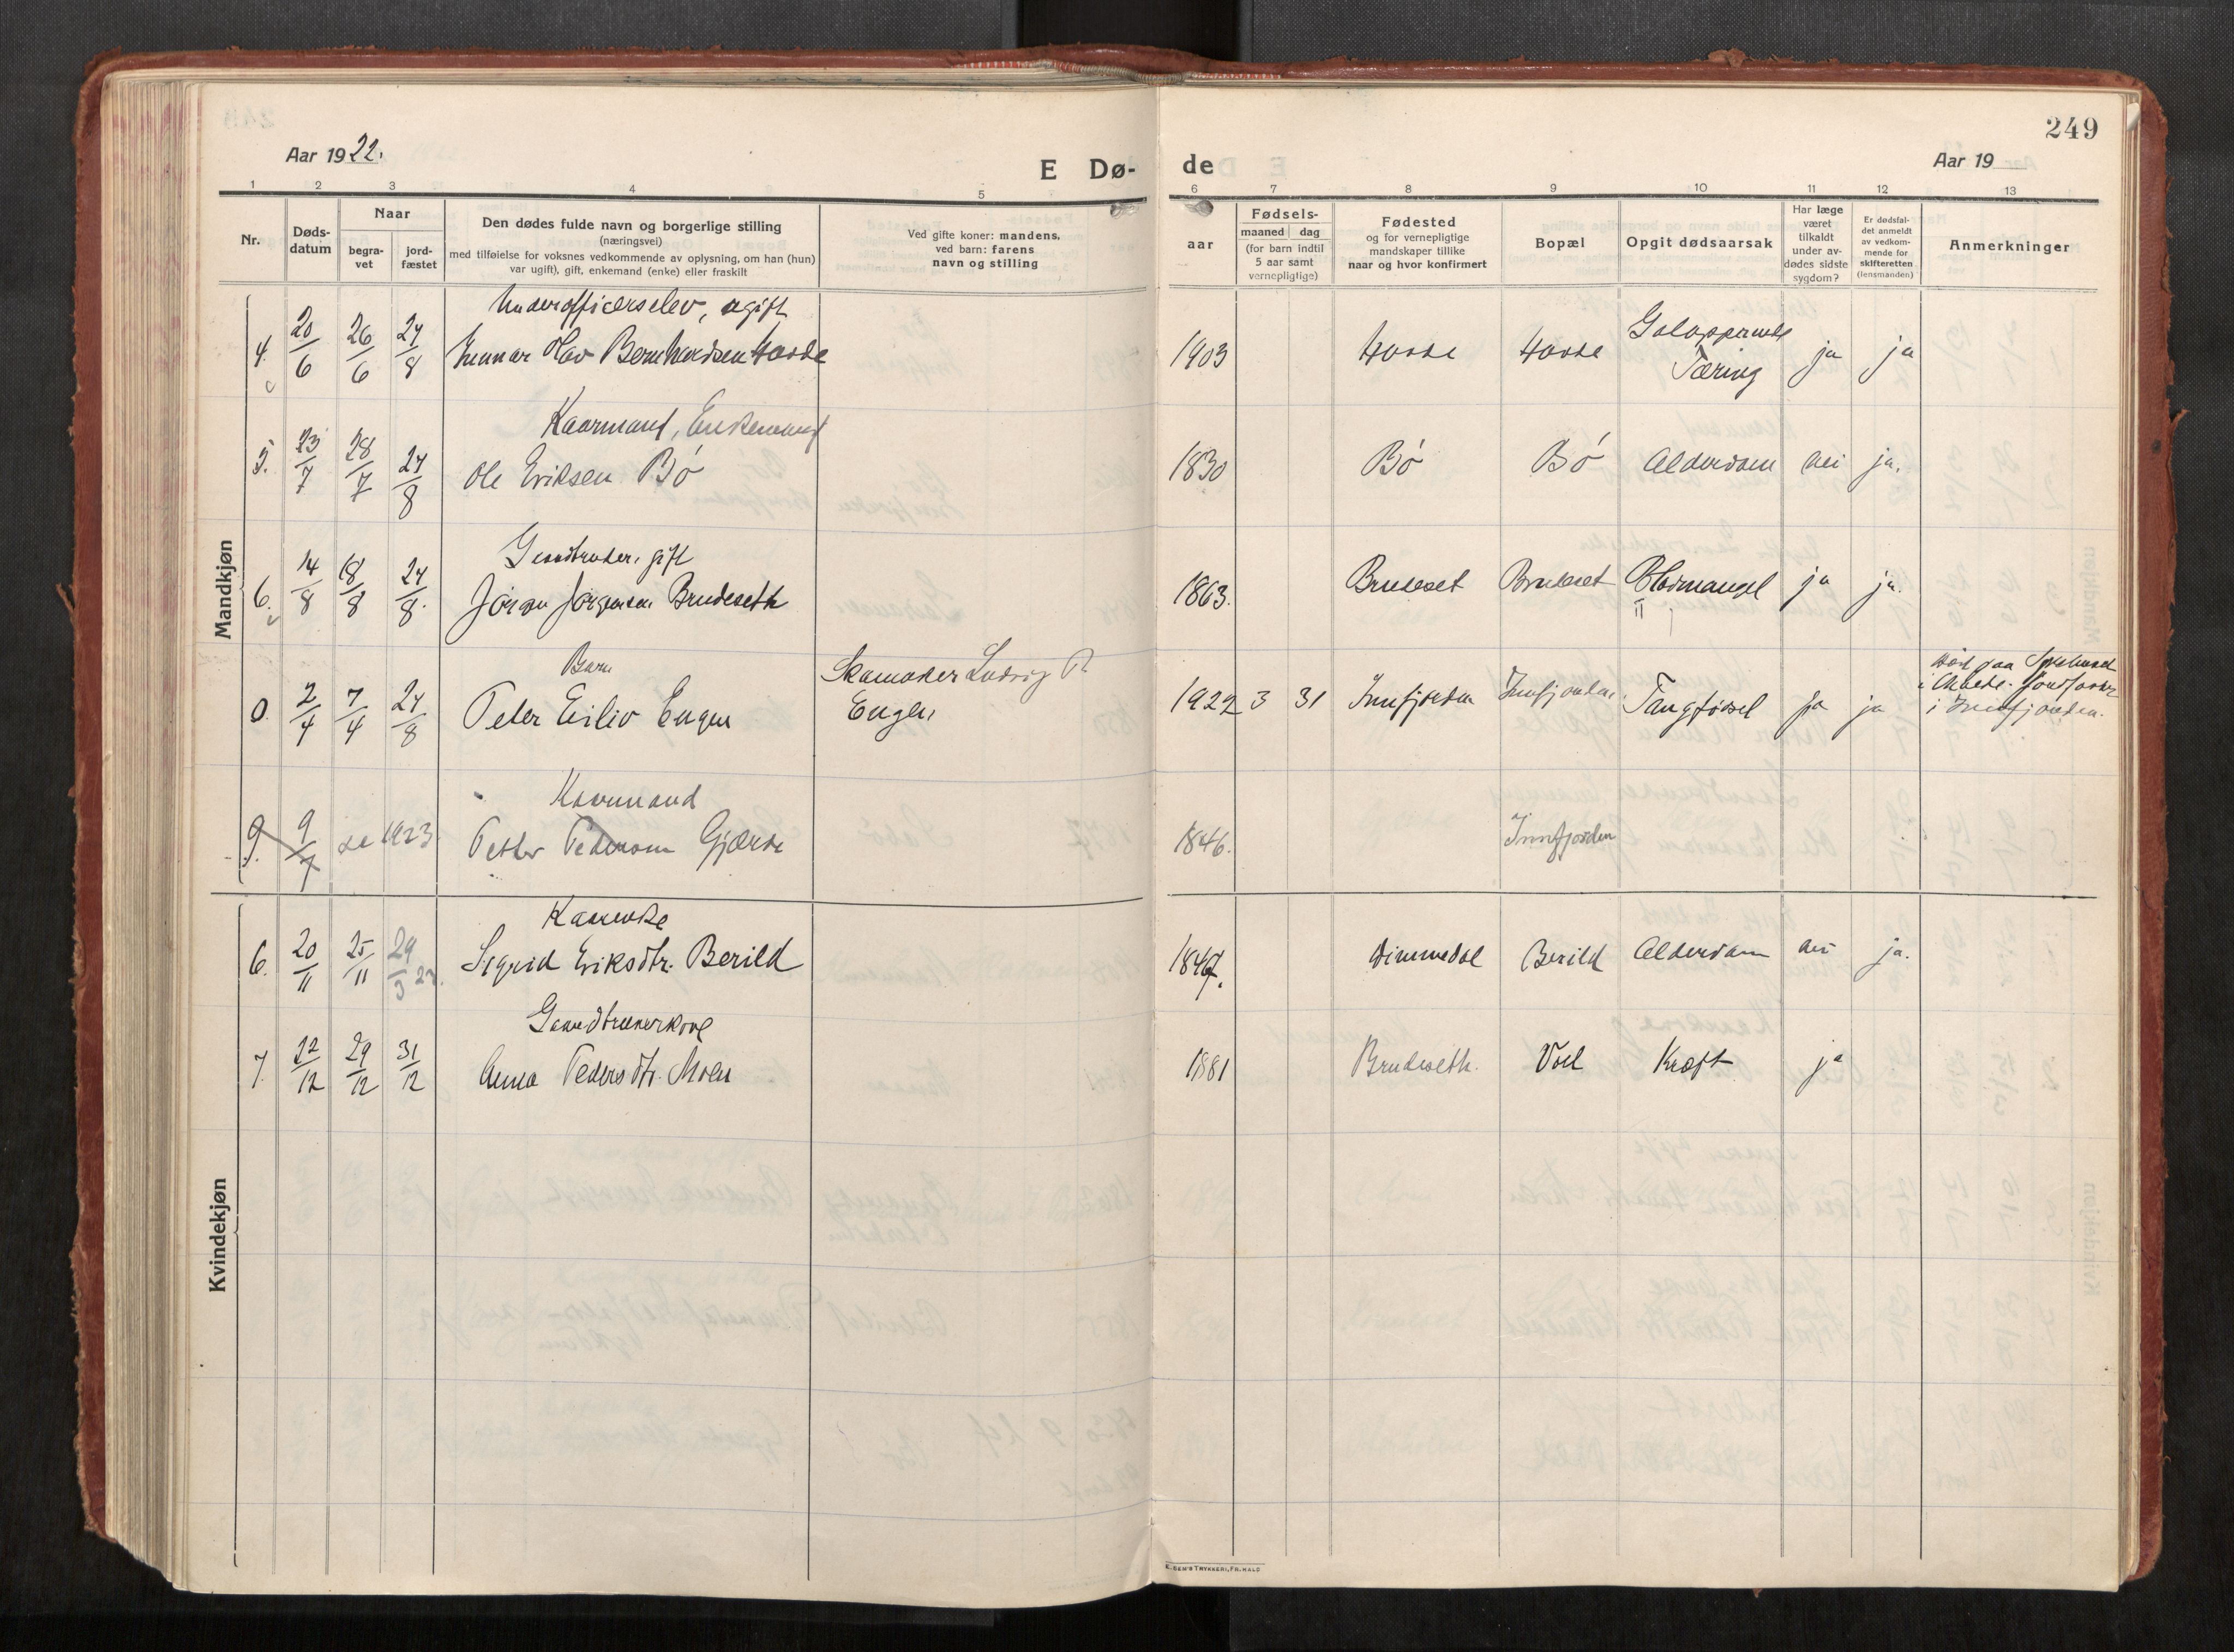 249
Aar 1922.
E Dø-
de
Aar 19
1 2 3 4 5 6 7 8 9 10 11 12 13
Nr.
Døds-
datum
Naar
begra-
vet
jord-
fæstet
Den dødes fulde navn og borgerlige stilling
(næringsvei)
med tilføielse for voksnes vedkommende av oplysning, om han (hun)
var ugift), gift, enkemand (enke) eller fraskilt
Ved gifte koner: mandens,
ved barn: farens
navn og stilling
aar
Fødsels-
maaned dag
(for barn indtil
5 aar samt
vernepligtige)
Fødested
og for vernepligtige
mandskaper tillike
naar og hvor konfirmert
Bopæl
Opgit dødsaarsak
Har læge
været
tilkaldt
under av-
dødes sidste
sygdom?
Er dødsfal-
det anmeldt
av vedkom-
mende for
skifteretten
(lensmanden)
Anmerkninger
Mandkjøn
Underofficerselev, ugift
4. 20/6 26/6 27/8 Gunnar Olav Bernhardsen 1903 ja ja
Tæring
Kaarmand, Enkemand
5. 23/7 28/7 27/8 Ole Eriksen Bø 1830 Bø Bø Alderdom nei ja.
gift
6. 14/8 18/8 27/8. Jørgen Jørgensen Brudeseth 1863. Brudeset Brudeset Blodmangel ja ja.
Barn
0. 2/4 7/4 27/8 Peter Eiliv Engen Ludvig P. Engen 1922 3 31 Innfjorden Innfjorden Tangfødsel ja ja
Død paa Sykehuset
i Molde. Jordfæstet
i Innfjorden.
Kaarmand
9. 9/7 se 1923 Petter Pederson Gjærde 1846. Innfjorden
Kvindekjøn
Kaarenke
6. 20/11 25/11 29/3 23. Sigrid Eriksdtr. Berild 1847. Dimmedal Berild Alderdom nei ja.
Gaardbrukerkone
7. 22/12 29/12 31/12 Anna Pedersdtr. Moen 1881 Brudeseth. Voll Kræft ja
TRYKKERI, FR.HALD